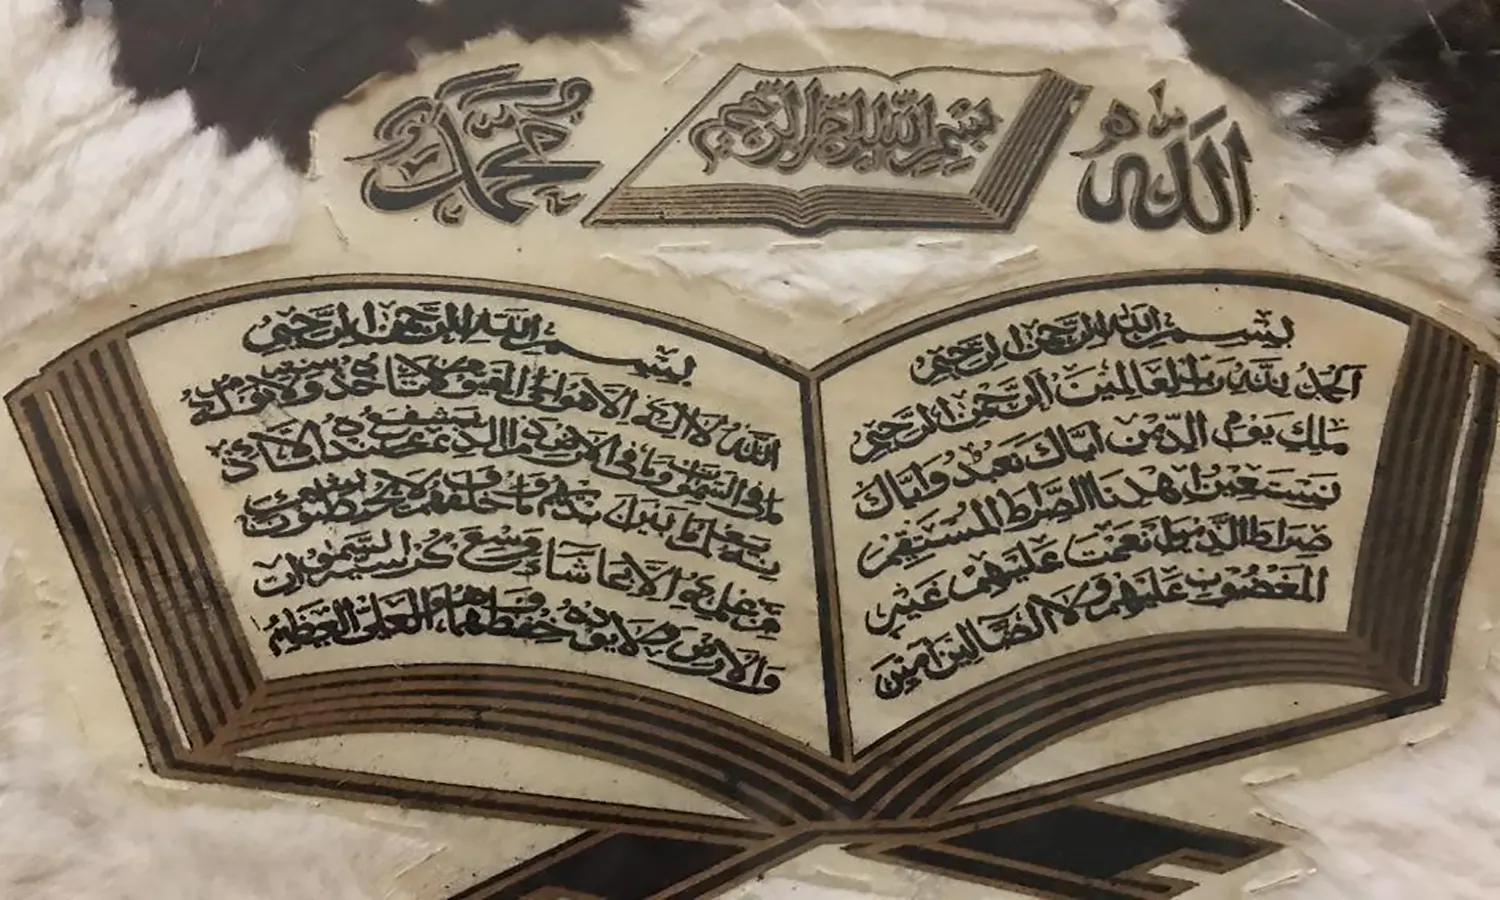 الله
بسم الله الرحمن الرحيم
محمد
بسم الله الرحمن الرحيم
الحمد لله رب العالمين الرحمن الرحيم
ملك يوم الدين اياك نعبد واياك
نستعين اهدنا الصراط المستقيم
صراط الذين انعمت عليهم غير
المغضوب عليهم ولا الضالين امين
بسم الله الرحمن الرحيم
الله لا اله الا هو الحي القيوم لا تاخذه سنة ولا نوم له
ما في السموت وما في الارض من ذا الذي يشفع عنده الا باذ
نه يعلم ما بين ايديهم وما خلفهم ولا يحيطون بشئ
من علمه الا بما شاء وسع كرسيه السموات
والارض ولا يوده حفظهما وهو العلي العظيم